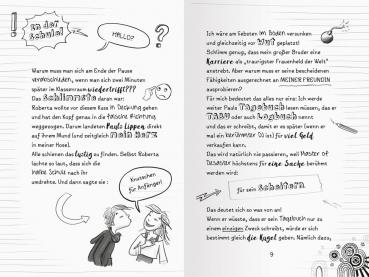 In der Schule!
HALLO?
Warum muss man sich am Ende der Pause
verabschieden, wenn man sich zwei Minuten
später im Klassenraum wiedertrifft???
Das Schlimmste daran war:
Roberta wollte vor diesem Kuss in Deckung gehen
und hat den Kopf genau in die falsche Richtung
weggezogen. Darum landeten Pauls Lippen direkt
auf ihrem Mund (und zeitgleich mein Herz
in meiner Hose).
Alle schienen das lustig zu finden. Selbst Roberta
lachte so laut, dass sich die
halbe Schule nach ihr
umdrehte. Und dann sagte sie:
Knutschen
für Anfänger!
Ich wäre am liebsten im Boden versunken
und gleichzeitig vor Wut geplatzt!
Schlimm genug, dass mein großer Bruder eine
Karriere als „traurigster Frauenheld der Welt"
anstrebt. Aber warum muss er seine bescheidenen
Fähigkeiten ausgerechnet an MEINER FREUNDIN
ausprobieren?
Für mich bedeutet das alles nur eins: Ich werde
weiter Pauls Tagebuch lesen müssen, das er
TABU oder auch Logbuch nennt
und das er schreibt, damit er es später (wenn er
mal ein berühmter ist) für viel Geld
verkaufen kann.
Das wird natürlich nie passieren, weil Master of
Desaster höchstens für eine Sache berühmt
werden wird:
für sein Scheitern
Das deutet sich so was von an!
Denn er wüsste, dass er sein Tagebuch nur zu
einem einzigen Zweck schreibt, würde er sich
bestimmt gleich die Kugel geben. Nämlich dazu,
9